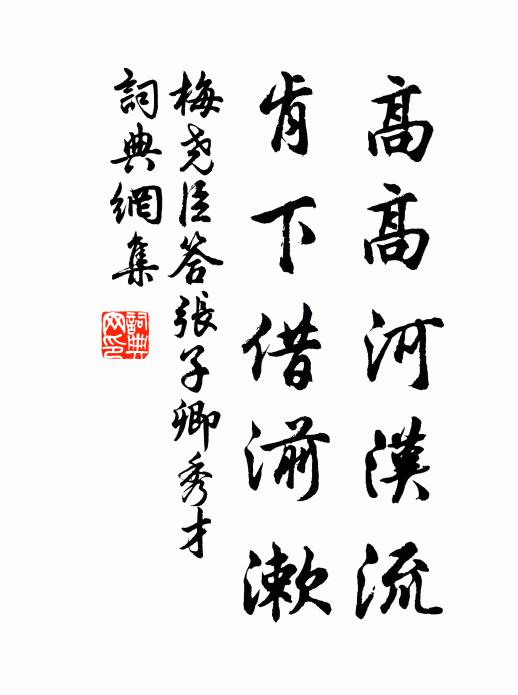 高高河漢流
肯下借湔漱
梅堯臣答張子卿秀才
詞典網集
詞典
网印